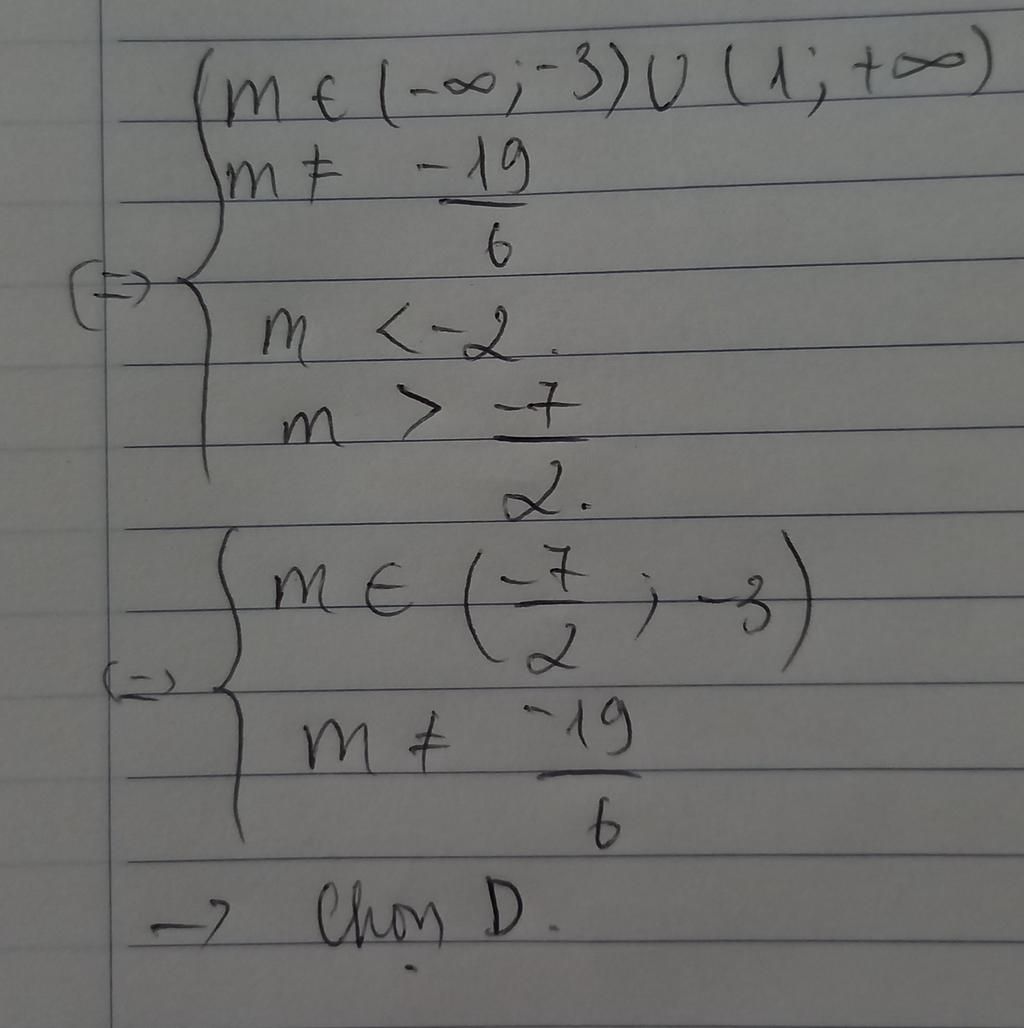 ⇔ { m ∈ (-∞; -3) ∪ (1; +∞)
m ≠ -19/6
m < -2.
m > -7/2.
⇔ { m ∈ (-7/2; -3)
m ≠ -19/6
→ Chọn D.